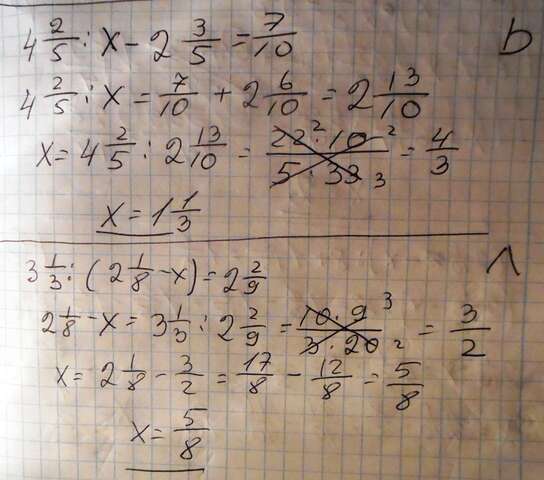 4 2/5 : x - 2 3/5 = 7/10 b
4 2/5 : x = 7/10 + 2 6/10 = 2 13/10
x = 4 2/5 : 2 13/10 = 22² · 10² / 5 · 33₃ = 4/3
x = 1 1/3
3 1/3 : (2 1/8 - x) = 2 2/9 1
2 1/8 - x = 3 1/3 : 2 2/9 = 10 · 9³ / 3 · 20² = 3/2
x = 2 1/8 - 3/2 = 17/8 - 12/8 = 5/8
x = 5/8